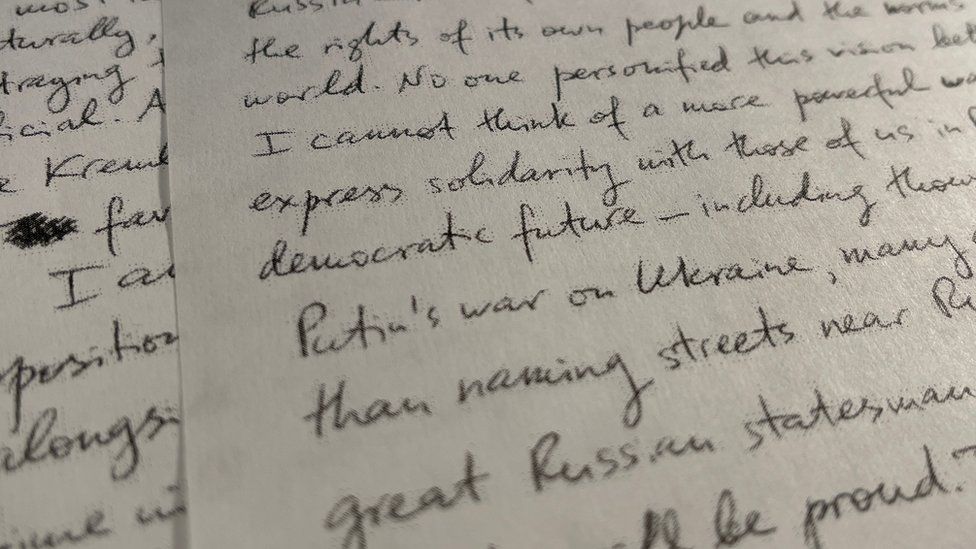 most
turally,
traying
icial. A
Kreml
far
I a
position
alongsi
ime
Russia
the rights of its own people and the norms
world. No one personified this vision bet
I cannot think of a more powerful wa
express solidarity with those of us in
democratic future — including thou
Putin's war on Ukraine, many
than naming streets near Ru
great Russian statesman
ll be proud."